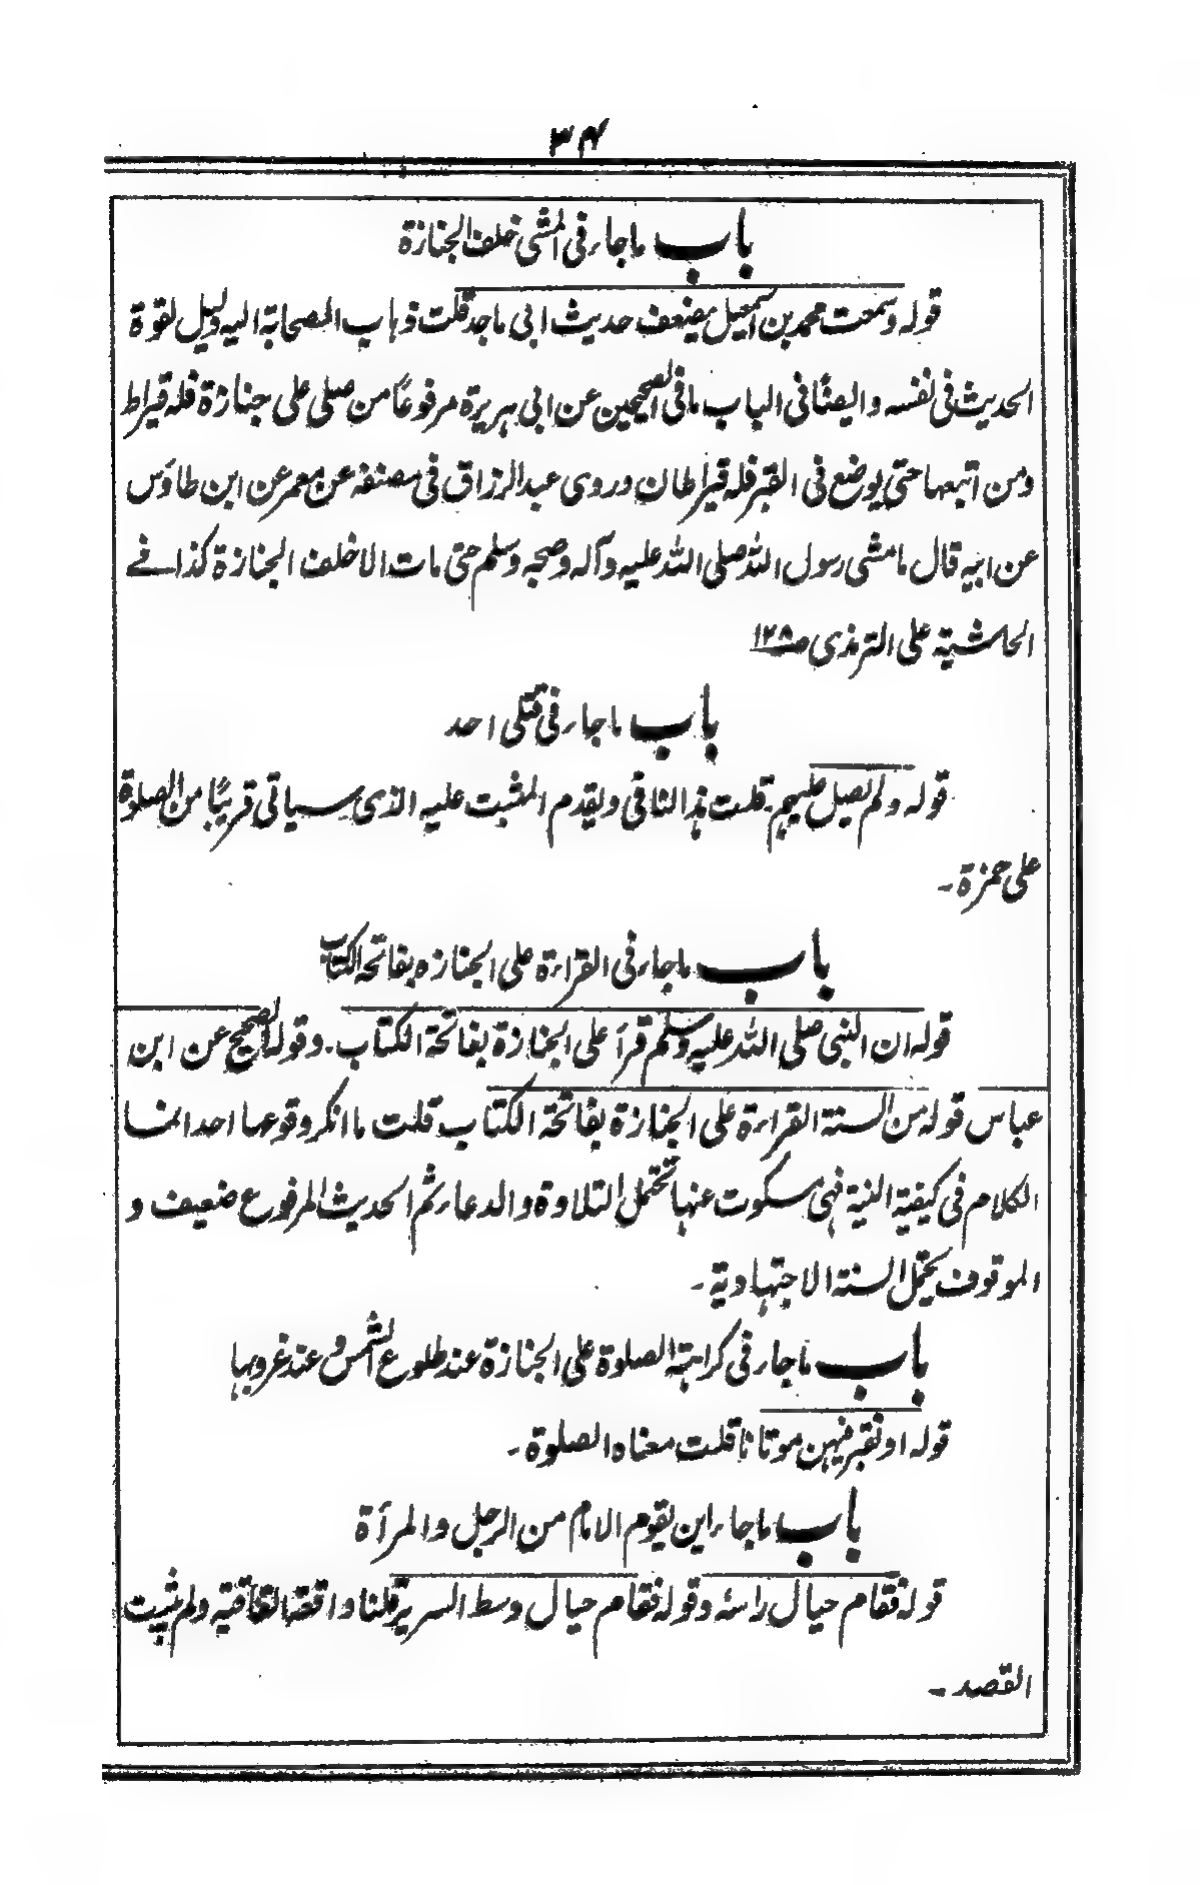 ۳۴
باب ماجاء فی المشی خلف الجنازة
قوله وسمعت محمد بن اسمعیل یضعف حدیث ابی ماجد قلت ذهاب الصحابة الیه دلیل لقوة
الحدیث فی نفسه وایضًا فی الباب مافی الصحیحین عن ابی هریرة مرفوعًا من صلی علی جنازة فله قیراط
ومن اتبعها حتی یوضع فی القبر فله قیراطان وروی عبد الرزاق فی مصنفه عن معمر عن ابن طاؤس
عن ابیه قال مامشی رسول الله صلی الله علیه وآله وصحبه وسلم حتی مات الا خلف الجنازة کذا فے
الحاشیة علی الترمذی ص۱۲۸
باب ماجاء فی قتلی احد
قوله ولم یصل علیهم قلت هذا النافی ویقدم المثبت علیه الذی سیاتی قریبًا من الصلوة
علی حمزة۔
باب ماجاء فی القراءة علی الجنازه بفاتحة الکتاب
قوله ان النبی صلی الله علیه وسلم قرأ علی الجنازة بفاتحة الکتاب۔ وقوله الصحیح عن ابن
عباس قوله من السنة القراءة علی الجنازة بفاتحة الکتاب قلت ما انکر وقوعها احد انما
الکلام فی کیفیة النیة فهی مسکوت عنها تحتمل التلاوة والدعاء ثم الحدیث المرفوع ضعیف و
الموقوف یحتمل السنة الاجتهادیة۔
باب ماجاء فی کراهیة الصلوة علی الجنازة عند طلوع الشمس وعند غروبها
قوله او نقبر فیهن موتانا قلت معناه الصلوة۔
باب ماجاء این یقوم الامام من الرجل والمرأة
قوله فقام حیال راسه وقوله فقام حیال وسط السریر قلنا واقعة اتفاقیة ولم یثبت
القصد۔